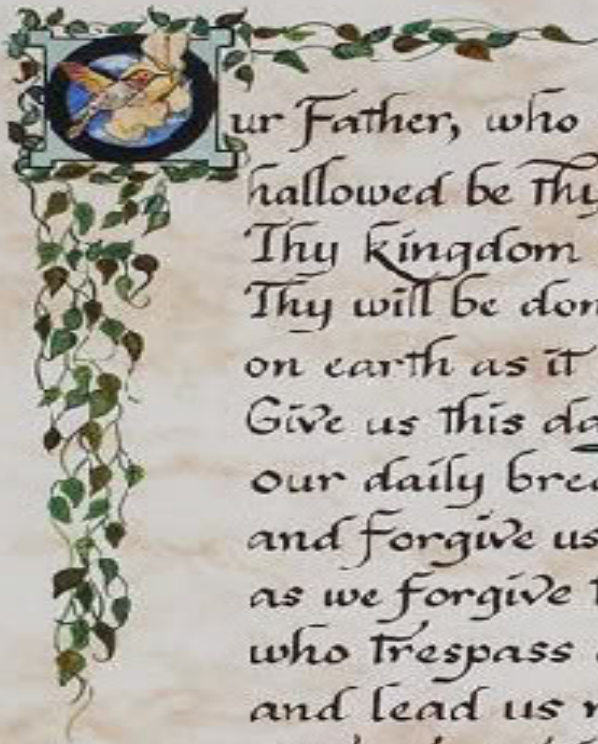 Our Father, who
hallowed be thy
Thy kingdom
Thy will be don
on earth as it
Give us this da
our daily brea
and forgive us
as we forgive t
who trespass a
and lead us n